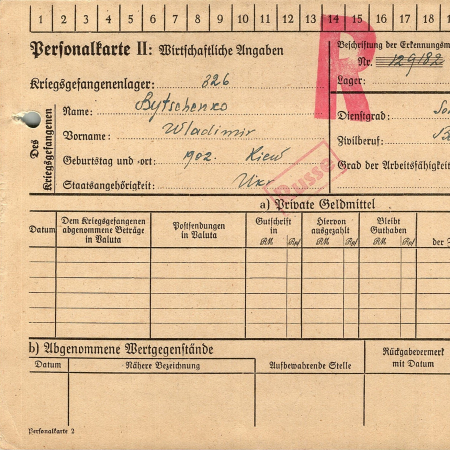 1 2 3 4 5 6 7 8 9 10 11 12 13 14 15 16 17 18
R
Personalkarte II: Wirtschaftliche Angaben
Beschriftung der Erkennungsm
Nr. 129182
Kriegsgefangenenlager: 326
Lager:
Des Kriegsgefangenen
Name: Bytschenko
Dienstgrad: So
Vorname: Wladimir
Zivilberuf:
Geburtstag und -ort: 1902. Kiew
Grad der Arbeitsfähigkeit
Staatsangehörigkeit: Ukr
Russe
a) Private Geldmittel
Datum
Dem Kriegsgefangenen abgenommene Beträge in Valuta
Postsendungen in Valuta
Gutschrift in
RM Rpf
Hiervon ausgezahlt
RM Rpf
Bleibt Guthaben
RM Rpf
der
b) Abgenommene Wertgegenstände
Datum
Nähere Bezeichnung
Aufbewahrende Stelle
Rückgabevermerk mit Datum
Personalkarte 2